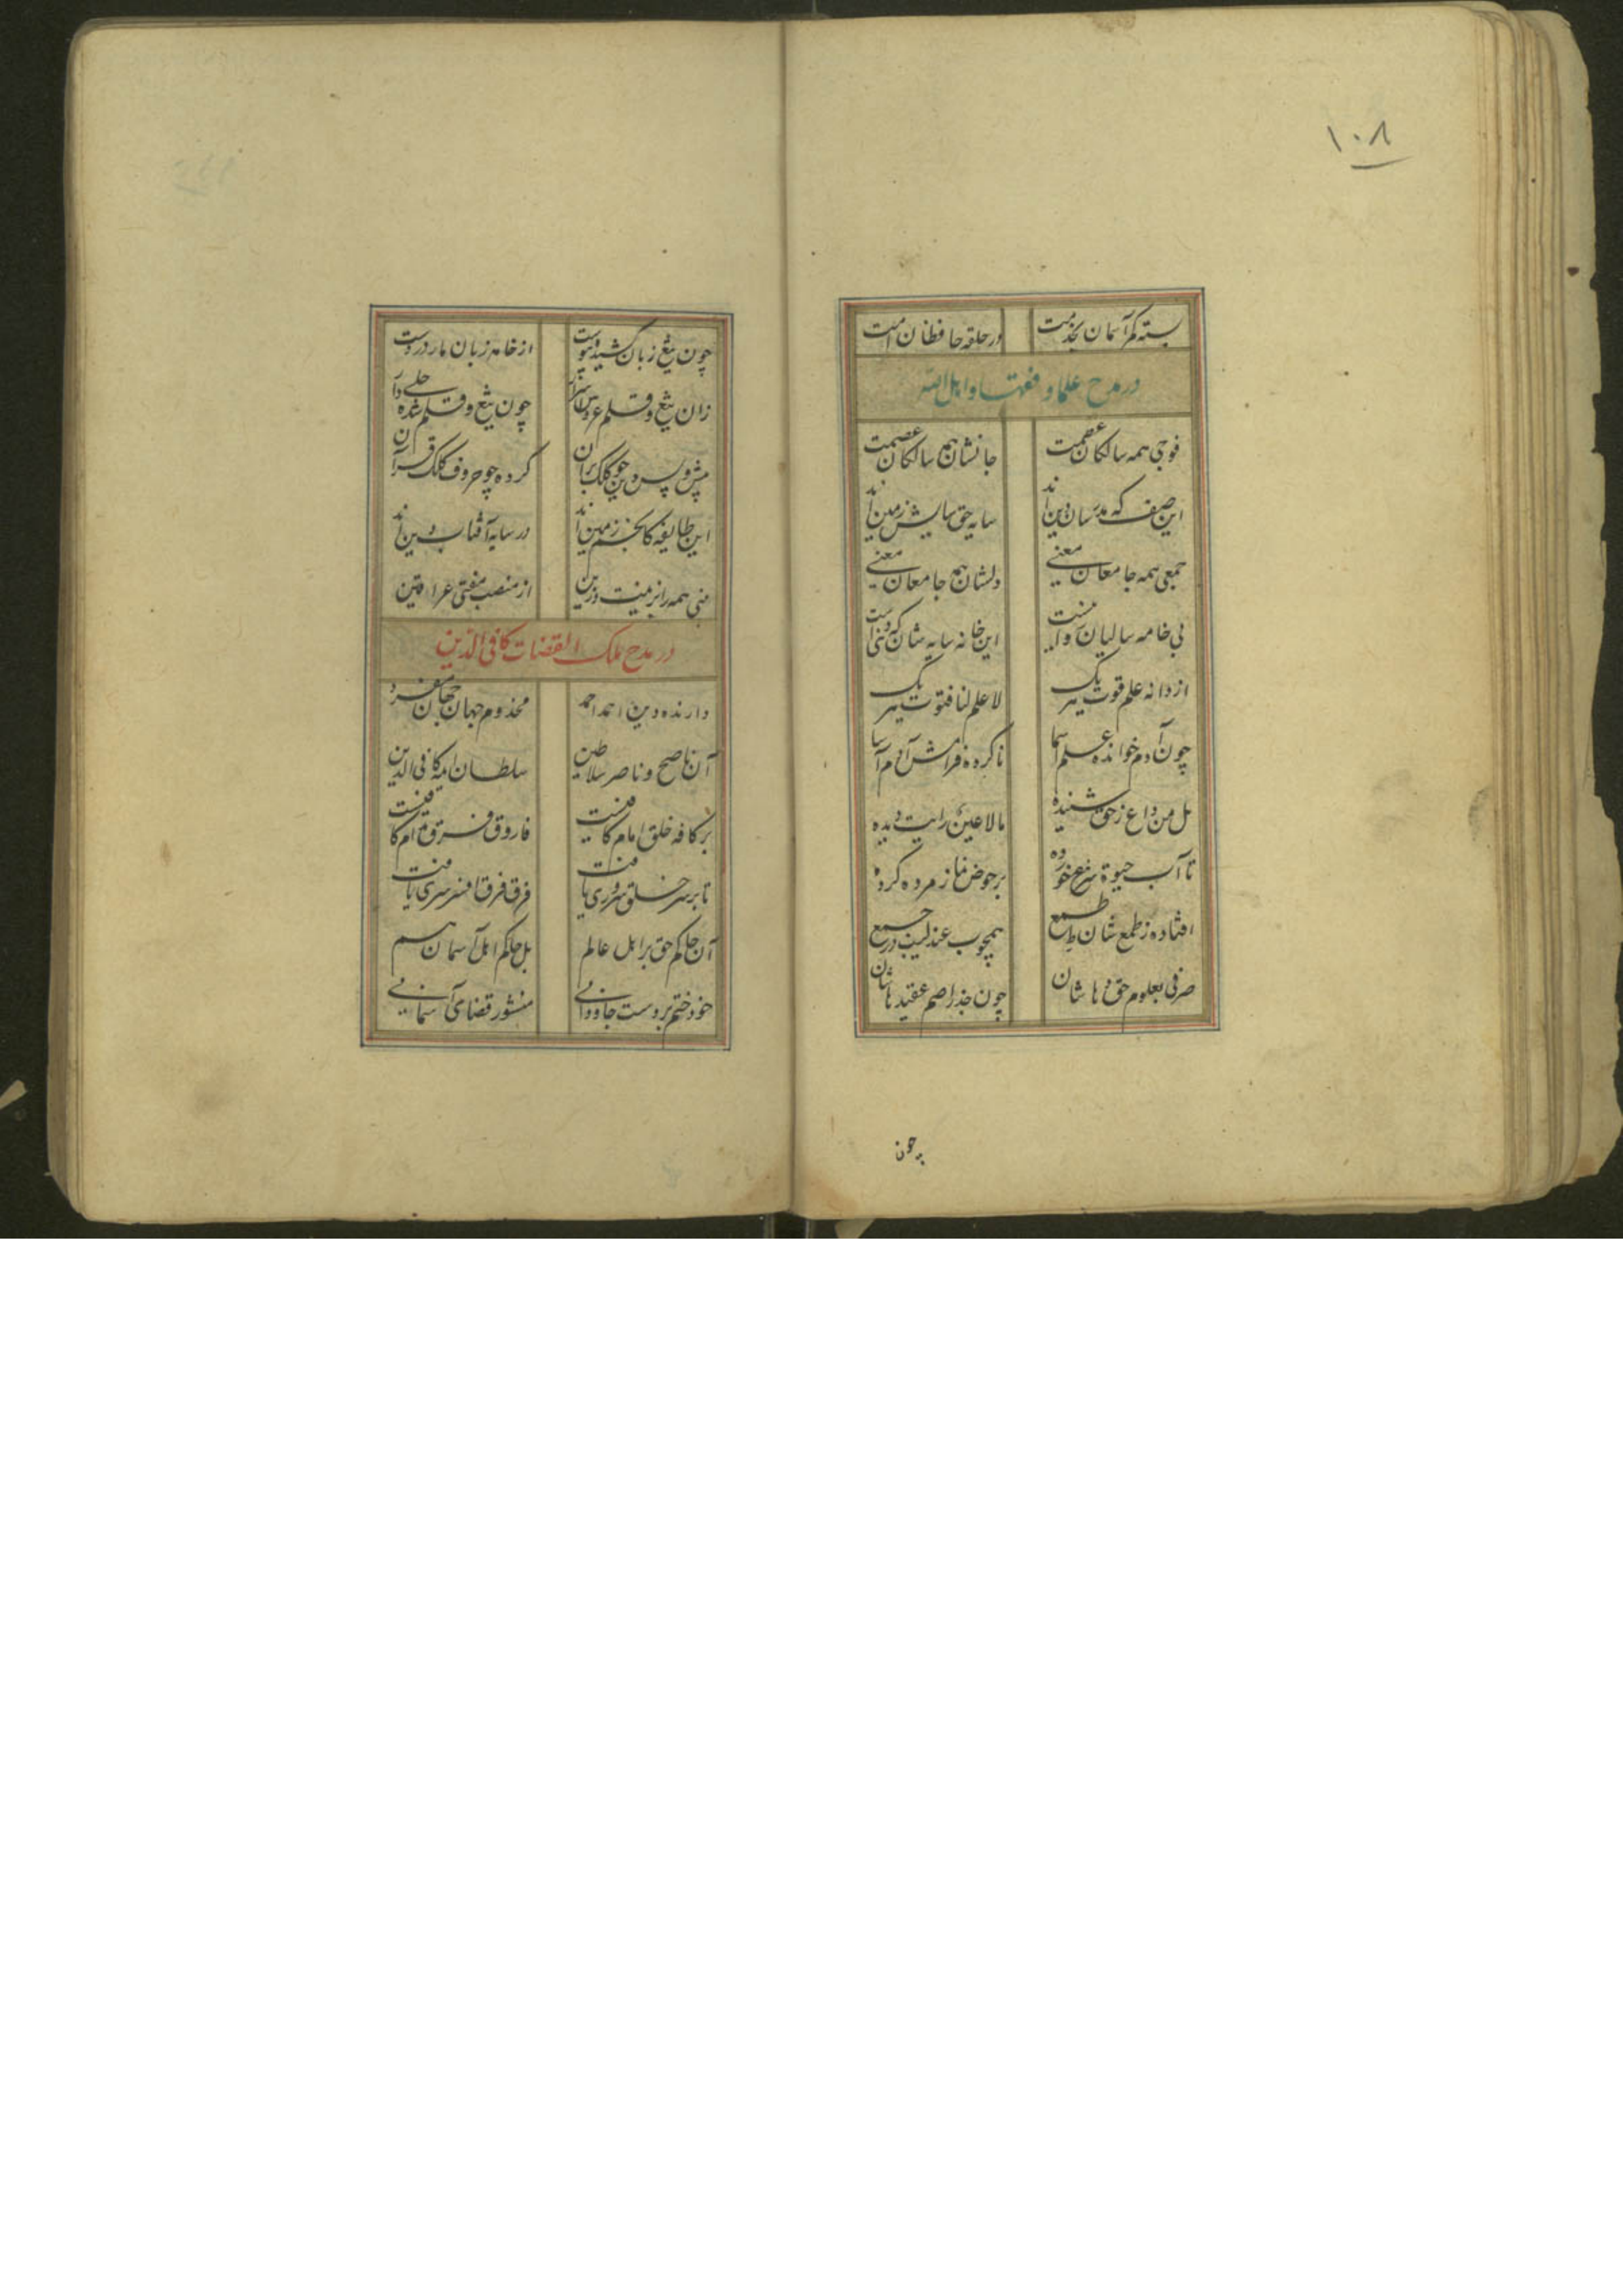 ۱۰۸
بسته کمر آسمان بخدمت در حلقه حافظان امت
در مدح علما و فقها و اهل الله
فوجی همه سالکان عصمت جانشان هم سالکان عصمت
این صف که مدرسان دین اند سایه حق زمین اند
جمعی همه جامعان معنی دلشان هم جامعان معنی
بی خامه سالیان این خانه سایه شان که
از دانه علم قوت یک یک لا علم لنا قنوت یک یک
چون آدم خوانده علم اسما ناکرده فرامش آدم آسا
بل من داع ز حق شنیده ما لا عین رایت دیده
تا آب حیوة شرع خورده بر حوض نماز مرده کرده
افتاده ز طمع شان طمع همچو عندلیب در جمع
صرفی بعلوم حق دها شان چون جذر اصم عقیدها شان
چون
چون تیغ زبان کشیده پیوست از خامه زبان مار در دست
زان تیغ و قلم عروس چون تیغ و قلم شده
پیش و پس دین چو کلک بران کرده چو حروف کلک قرآن
این طایفه کانجم زمین اند در سایه آفتاب دین اند
همه را بزینت و زین از منصب مفتی عراقین
در مدح ملک القضات کافی الدین
دارنده دین احمد احمد مخدوم جهان جهان مفرد
آن ناصح و ناصر سلاطین سلطان ایمه کافی الدین
بر کافه خلق امام کافیست فاروق فرق هم ام کافیست
تا بر سر خلق سروری یافت فرق فرق افسر سری یافت
آن حاکم حق بر اهل عالم بل حاکم اهل آسمان هم
خود ختم بروست جاودانی منشور قضای آسمانی